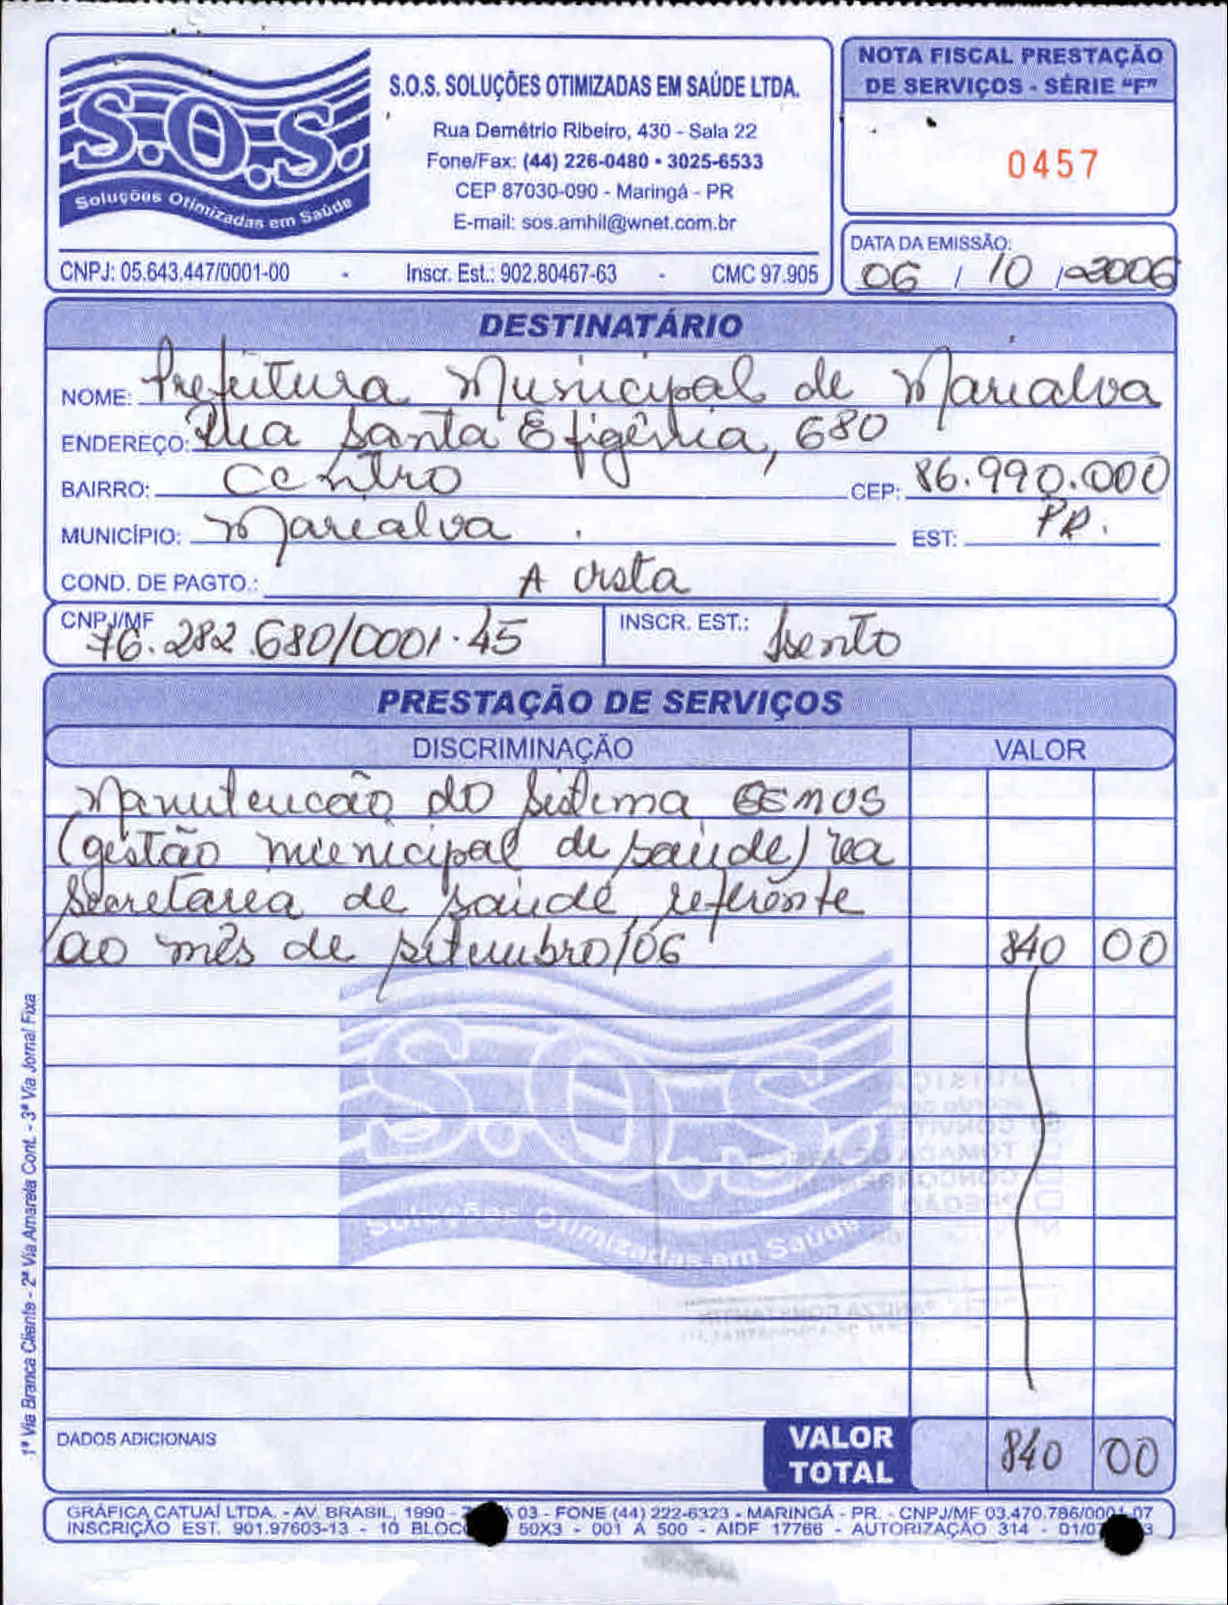 S.O.S.
Soluções Otimizadas em Saúde
S.O.S. SOLUÇÕES OTIMIZADAS EM SAÚDE LTDA.
Rua Demétrio Ribeiro, 430 - Sala 22
Fone/Fax: (44) 226-0480 • 3025-6533
CEP 87030-090 - Maringá - PR
E-mail: sos.amhil@wnet.com.br
CNPJ: 05.643.447/0001-00 - Inscr. Est.: 902.80467-63 - CMC 97.905
NOTA FISCAL PRESTAÇÃO
DE SERVIÇOS - SÉRIE "F"
0457
DATA DA EMISSÃO:
06 / 10 / 2006
DESTINATÁRIO
NOME: Prefeitura Municipal de Marialva
ENDEREÇO: Rua Santa Efigênia, 680
BAIRRO: Centro CEP: 86.990.000
MUNICÍPIO: Marialva EST: PR.
COND. DE PAGTO.: A vista
CNPJ/MF 76.282.680/0001-45 INSCR. EST.: Isento
PRESTAÇÃO DE SERVIÇOS
DISCRIMINAÇÃO VALOR
Manutencão do Sistema GEMUS
(gestão municipal de saúde) na
Secretaria de saúde, referente
ao mês de setembro/06 840 00
S.O.S.
Soluções Otimizadas em Saúde
CONVITE
TOMADA DE
CONCORRÊNCIA
PREGÃO
DADOS ADICIONAIS
VALOR TOTAL 840 00
1ª Via Branca Cliente - 2ª Via Amarela Cont. - 3ª Via Jornal Fixa
GRÁFICA CATUAÍ LTDA. - AV. BRASIL, 1990 - 03 - FONE (44) 222-6323 - MARINGÁ - PR. - CNPJ/MF 03.470.786/0001-07
INSCRIÇÃO EST. 901.97603-13 - 10 50X3 - 001 A 500 - AIDF 17766 - AUTORIZAÇÃO 314 -